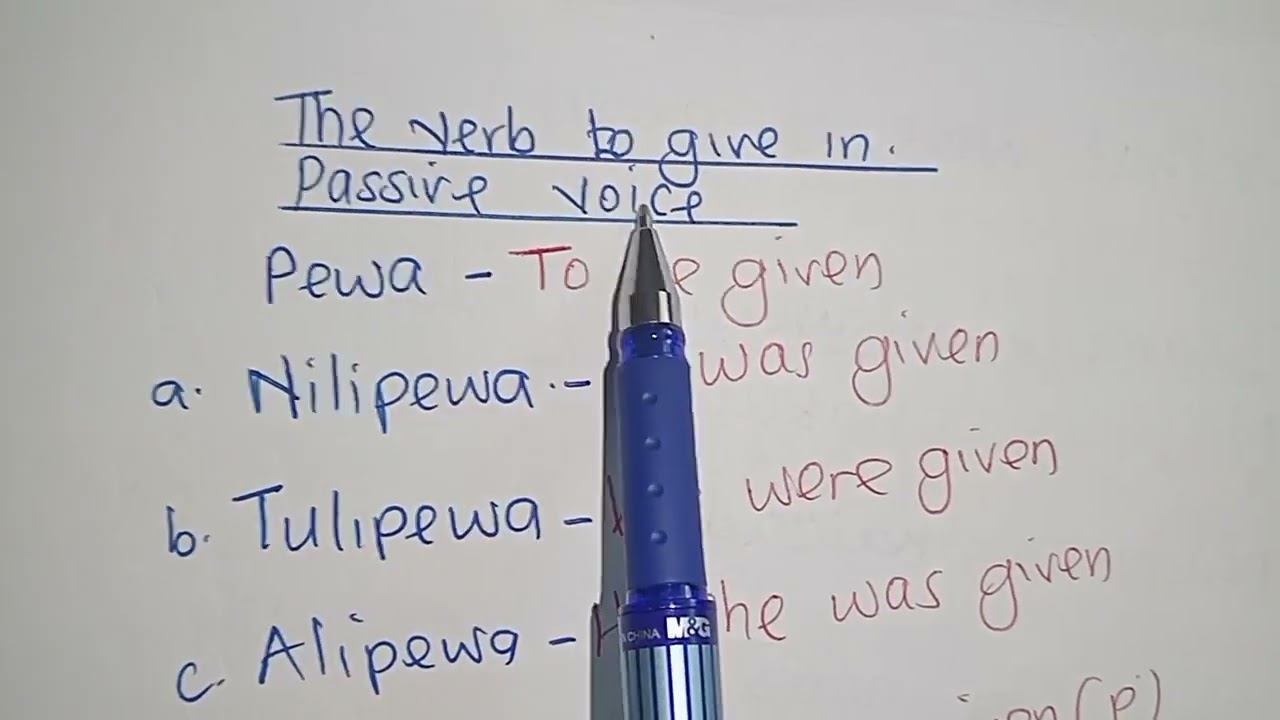 The verb to give in.
Passive voice
Pewa - To given
a. Nilipewa. - was given
b. Tulipewa - were given
c. Alipewa - he was given
(p)
CHINA M&G